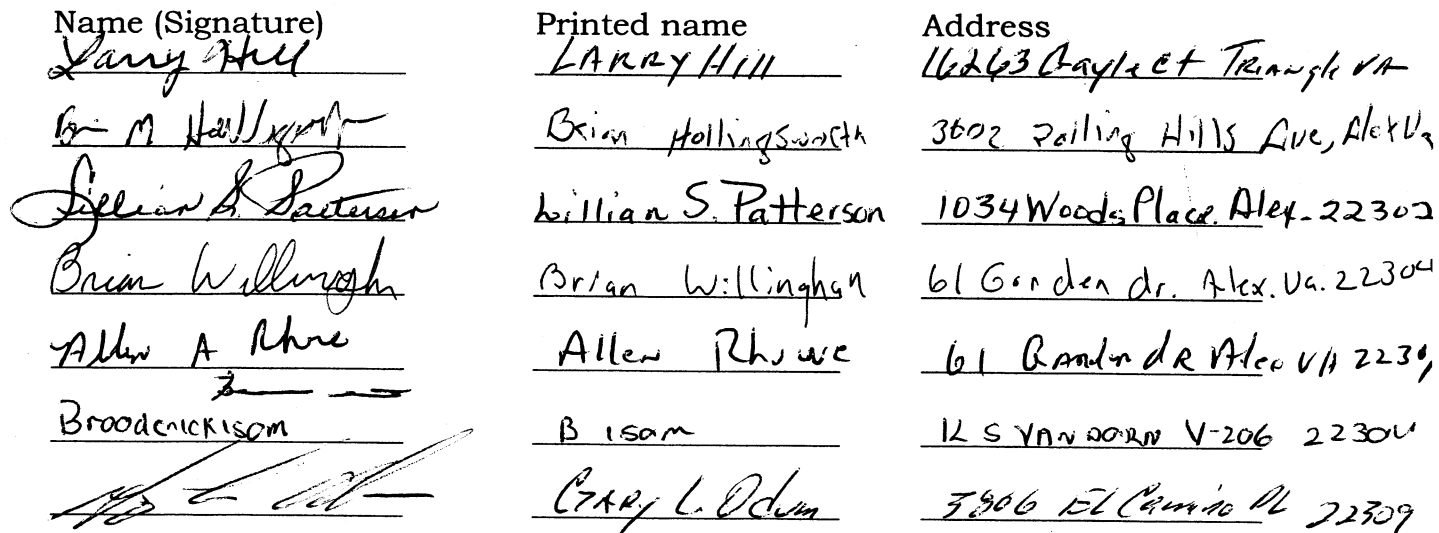 Name (Signature) Printed name Address
Larry Hill LARRY Hill 16263 Gayle ct TRiangle VA
M Brian Hollingsworth 3602 Hills Ave, Alex Va
Lillian S. Patterson Lillian S. Patterson 1034 Woods Place. Alex. 22302
Brian Willingh Brian Willingham 61 Garden dr. Alex. Va. 22304
Allen A Allen 61 GARden dR Alex VA
Brooderickisom B isom S VAN DORN V-206 22304
GARY L. Odum 3806 El Camino PL 22309